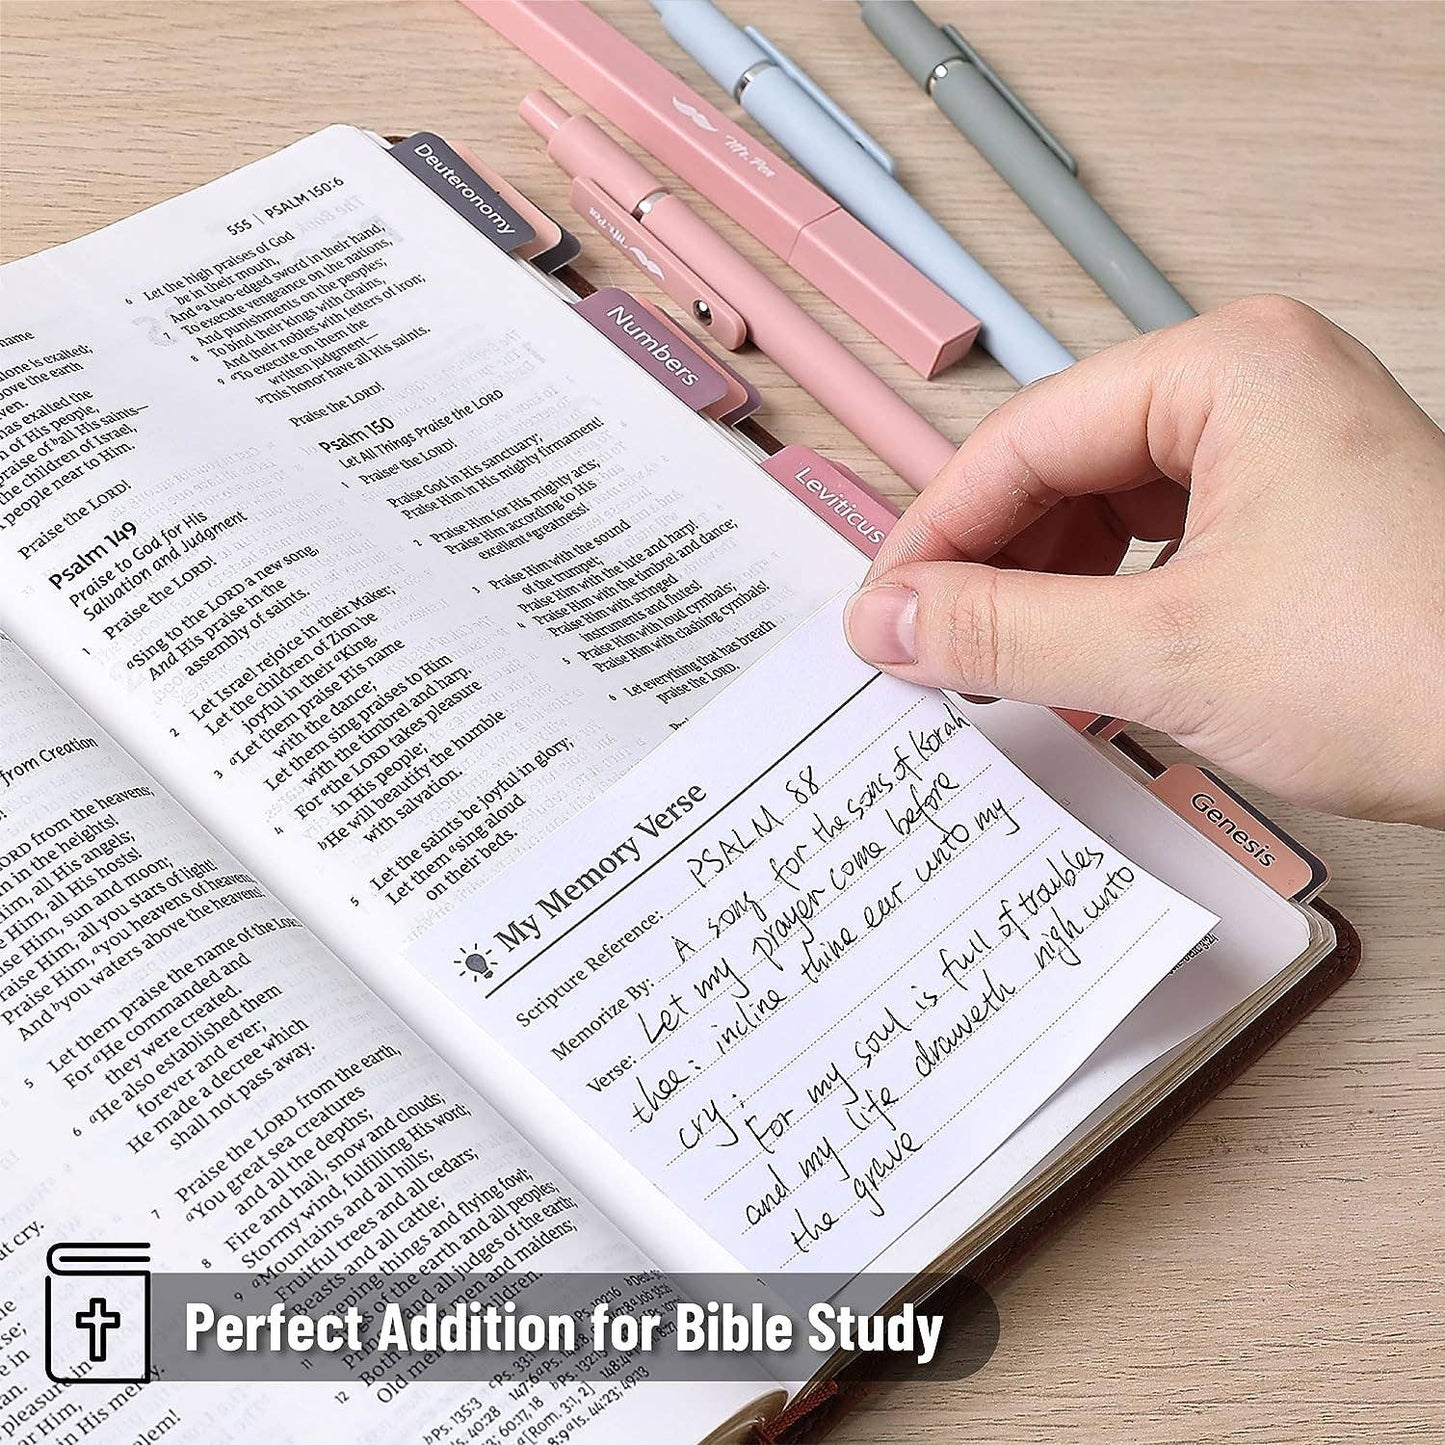 555 | PSALM 150:6
name
alone is exalted;
above the earth
has exalted the
of His people,
praise of ball His saints—
the children of Israel,
people near to Him.
Praise the LORD!
Psalm 149
Praise to God for His
Salvation and Judgment
1 Praise the LORD!
aSing to the LORD a new song,
And His praise in the
assembly of saints.
2 Let Israel rejoice in their Maker;
Let the children of Zion be
joyful in their aKing.
3 aLet them praise His name
with the dance;
Let them sing praises to Him
with the timbrel and harp.
4 For athe LORD takes pleasure
in His people;
bHe will beautify the humble
with salvation.
5 Let the saints be joyful in glory;
Let them asing aloud
on their beds.
6 Let the high praises of God
be in their mouth,
And aa two-edged sword in their hand,
7 To execute vengeance on the nations,
And punishments on the peoples;
8 To bind their kings with chains,
And their nobles with fetters of iron;
9 aTo execute on them the
written judgment—
bThis honor have all His saints.
Praise the LORD!
Psalm 150
Let All Things Praise the LORD
1 Praisea the LORD!
Praise God in His sanctuary;
Praise Him in His mighty firmament!
2 Praise Him for His mighty acts;
Praise Him according to His
excellent agreatness!
3 Praise Him with the sound
of the trumpet;
Praise Him with the lute and harp!
4 Praise Him with the timbrel and dance;
Praise Him with stringed
instruments and flutes!
5 Praise Him with loud cymbals;
Praise Him with clashing cymbals!
6 Let everything that has breath
praise the LORD.
from Creation
LORD from the heavens;
in the heights!
Him, all His angels;
Him, all His hosts!
Him, sun and moon;
Him, all you stars of light!
Praise Him, ayou heavens of heavens,
And byou waters above the heavens!
5 Let them praise the name of the LORD,
For aHe commanded and
they were created.
6 aHe also established them
forever and ever;
He made a decree which
shall not pass away.
7 Praise the LORD from the earth,
aYou great sea creatures
and all the depths;
8 Fire and hail, snow and clouds;
Stormy wind, fulfilling His word;
9 aMountains and all hills;
Fruitful trees and all cedars;
Beasts and all cattle;
things and flying fowl;
of the earth and all peoples;
and all judges of the earth;
12 Both men and maidens;
Old men and children.
Deuteronomy
Numbers
Leviticus
Genesis
Mr. Pen
Mr. Pen
My Memory Verse
Scripture Reference: PSALM 88
Memorize By: A song for the sons of Korah
Verse: Let my prayer come before
thee: incline thine ear unto my
cry;
For my soul is full of troubles
and my life draweth nigh unto
the grave
Perfect Addition for Bible Study